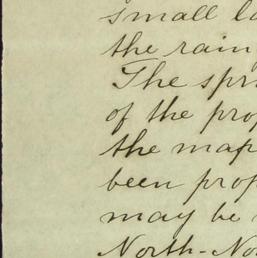 small la
the rain
The spri
of the prop
the map
been prop
may be
North-No